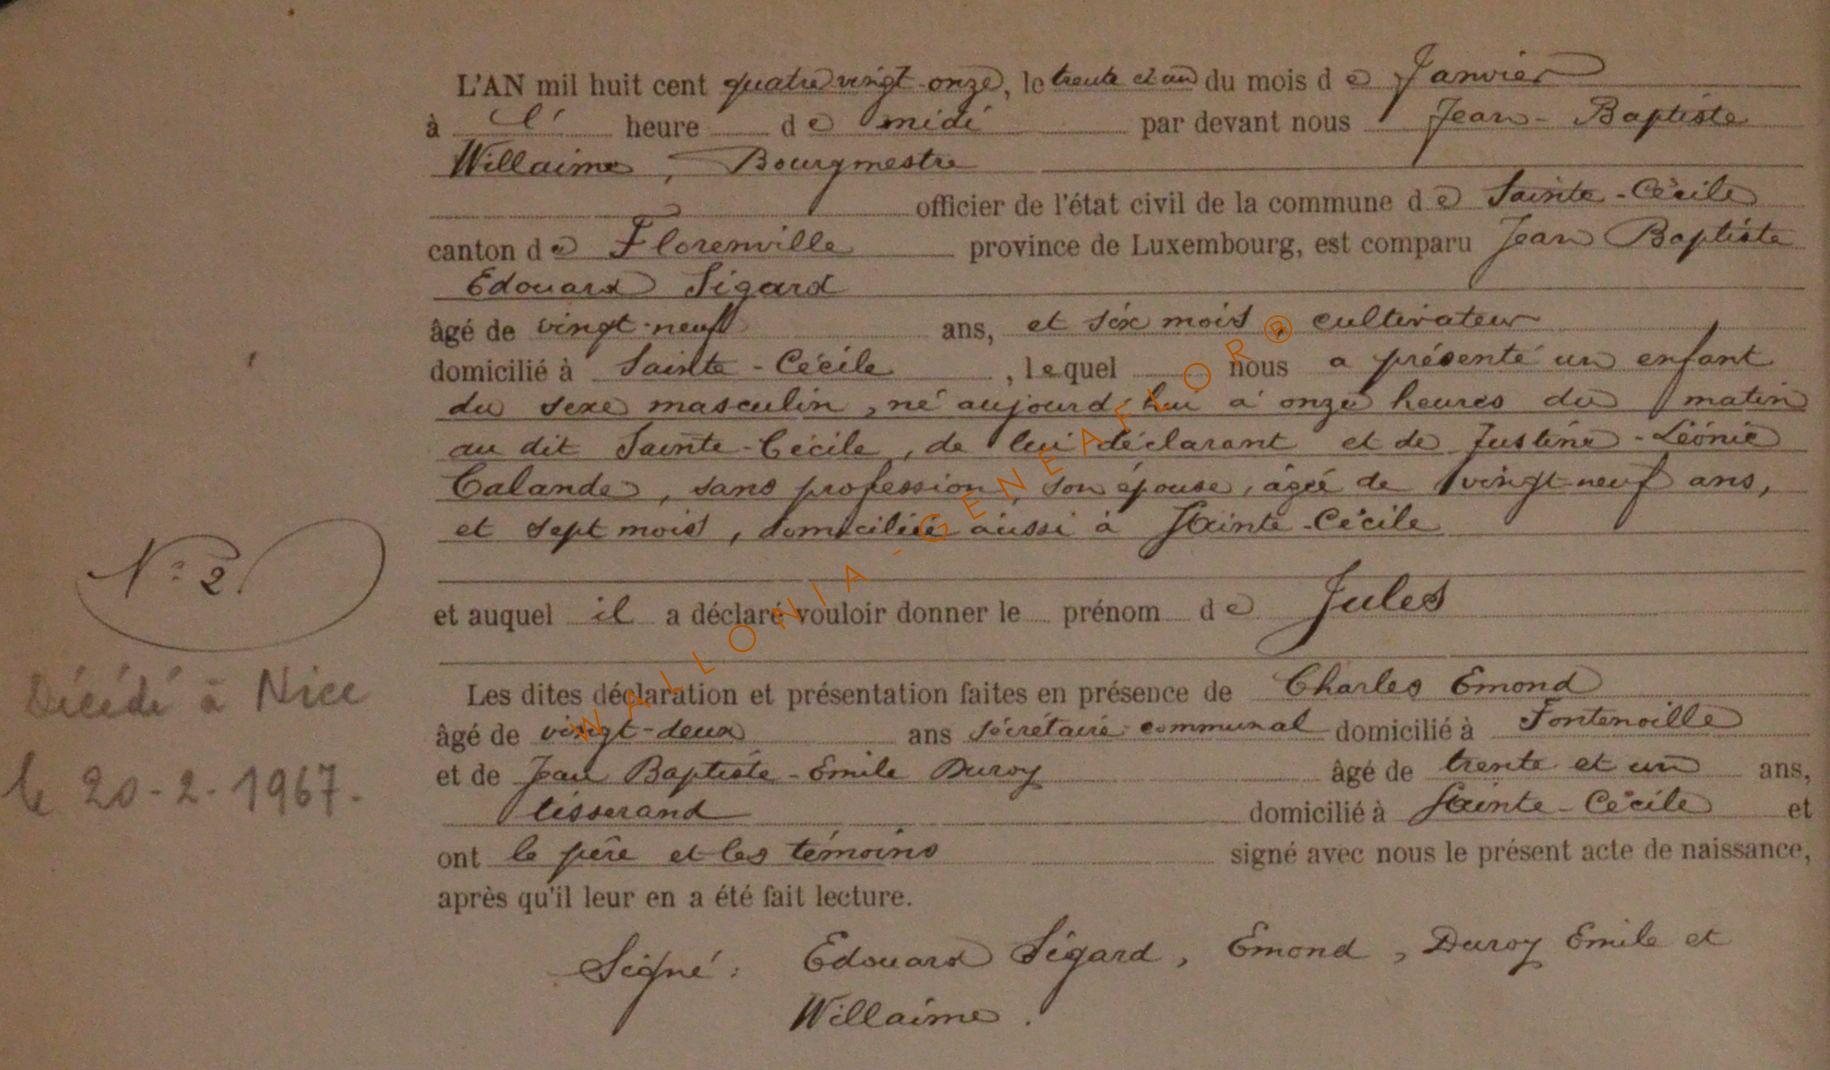 L'AN mil huit cent quatre vingt-onze, le trente et un du mois de Janvier
à l' heure de midi par devant nous Jean-Baptiste
Willaime, Bourgmestre
officier de l'état civil de la commune de Sainte-Cécile
canton de Florenville province de Luxembourg, est comparu Jean Baptiste
Edouard Sigard
âgé de vingt-neuf ans, et six mois, cultivateur
domicilié à Sainte-Cécile, lequel nous a présenté un enfant
du sexe masculin, né aujourd'hui à onze heures du matin
au dit Sainte-Cécile, de lui déclarant et de Justine-Léonie
Calande, sans profession, son épouse, âgée de vingt-neuf ans,
et sept mois, domiciliée aussi à Sainte-Cécile
N° 2
et auquel il a déclaré vouloir donner le prénom de Jules
Décédé à Nice
le 20-2-1967.
Les dites déclaration et présentation faites en présence de Charles Emond
âgé de vingt-deux ans sécrétaire communal domicilié à Fontenoille
et de Jean Baptiste-Emile Duroy âgé de trente et un ans,
tisserand domicilié à Sainte-Cécile et
ont le père et les témoins signé avec nous le présent acte de naissance,
après qu'il leur en a été fait lecture.
Signé: Edouard Sigard, Emond, Duroy Emile et
Willaime.
WALLONIA-GENEAFLOR®